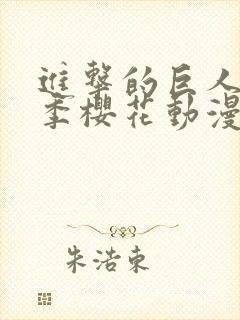 進擊的巨人
季櫻花動漫
朱浩東